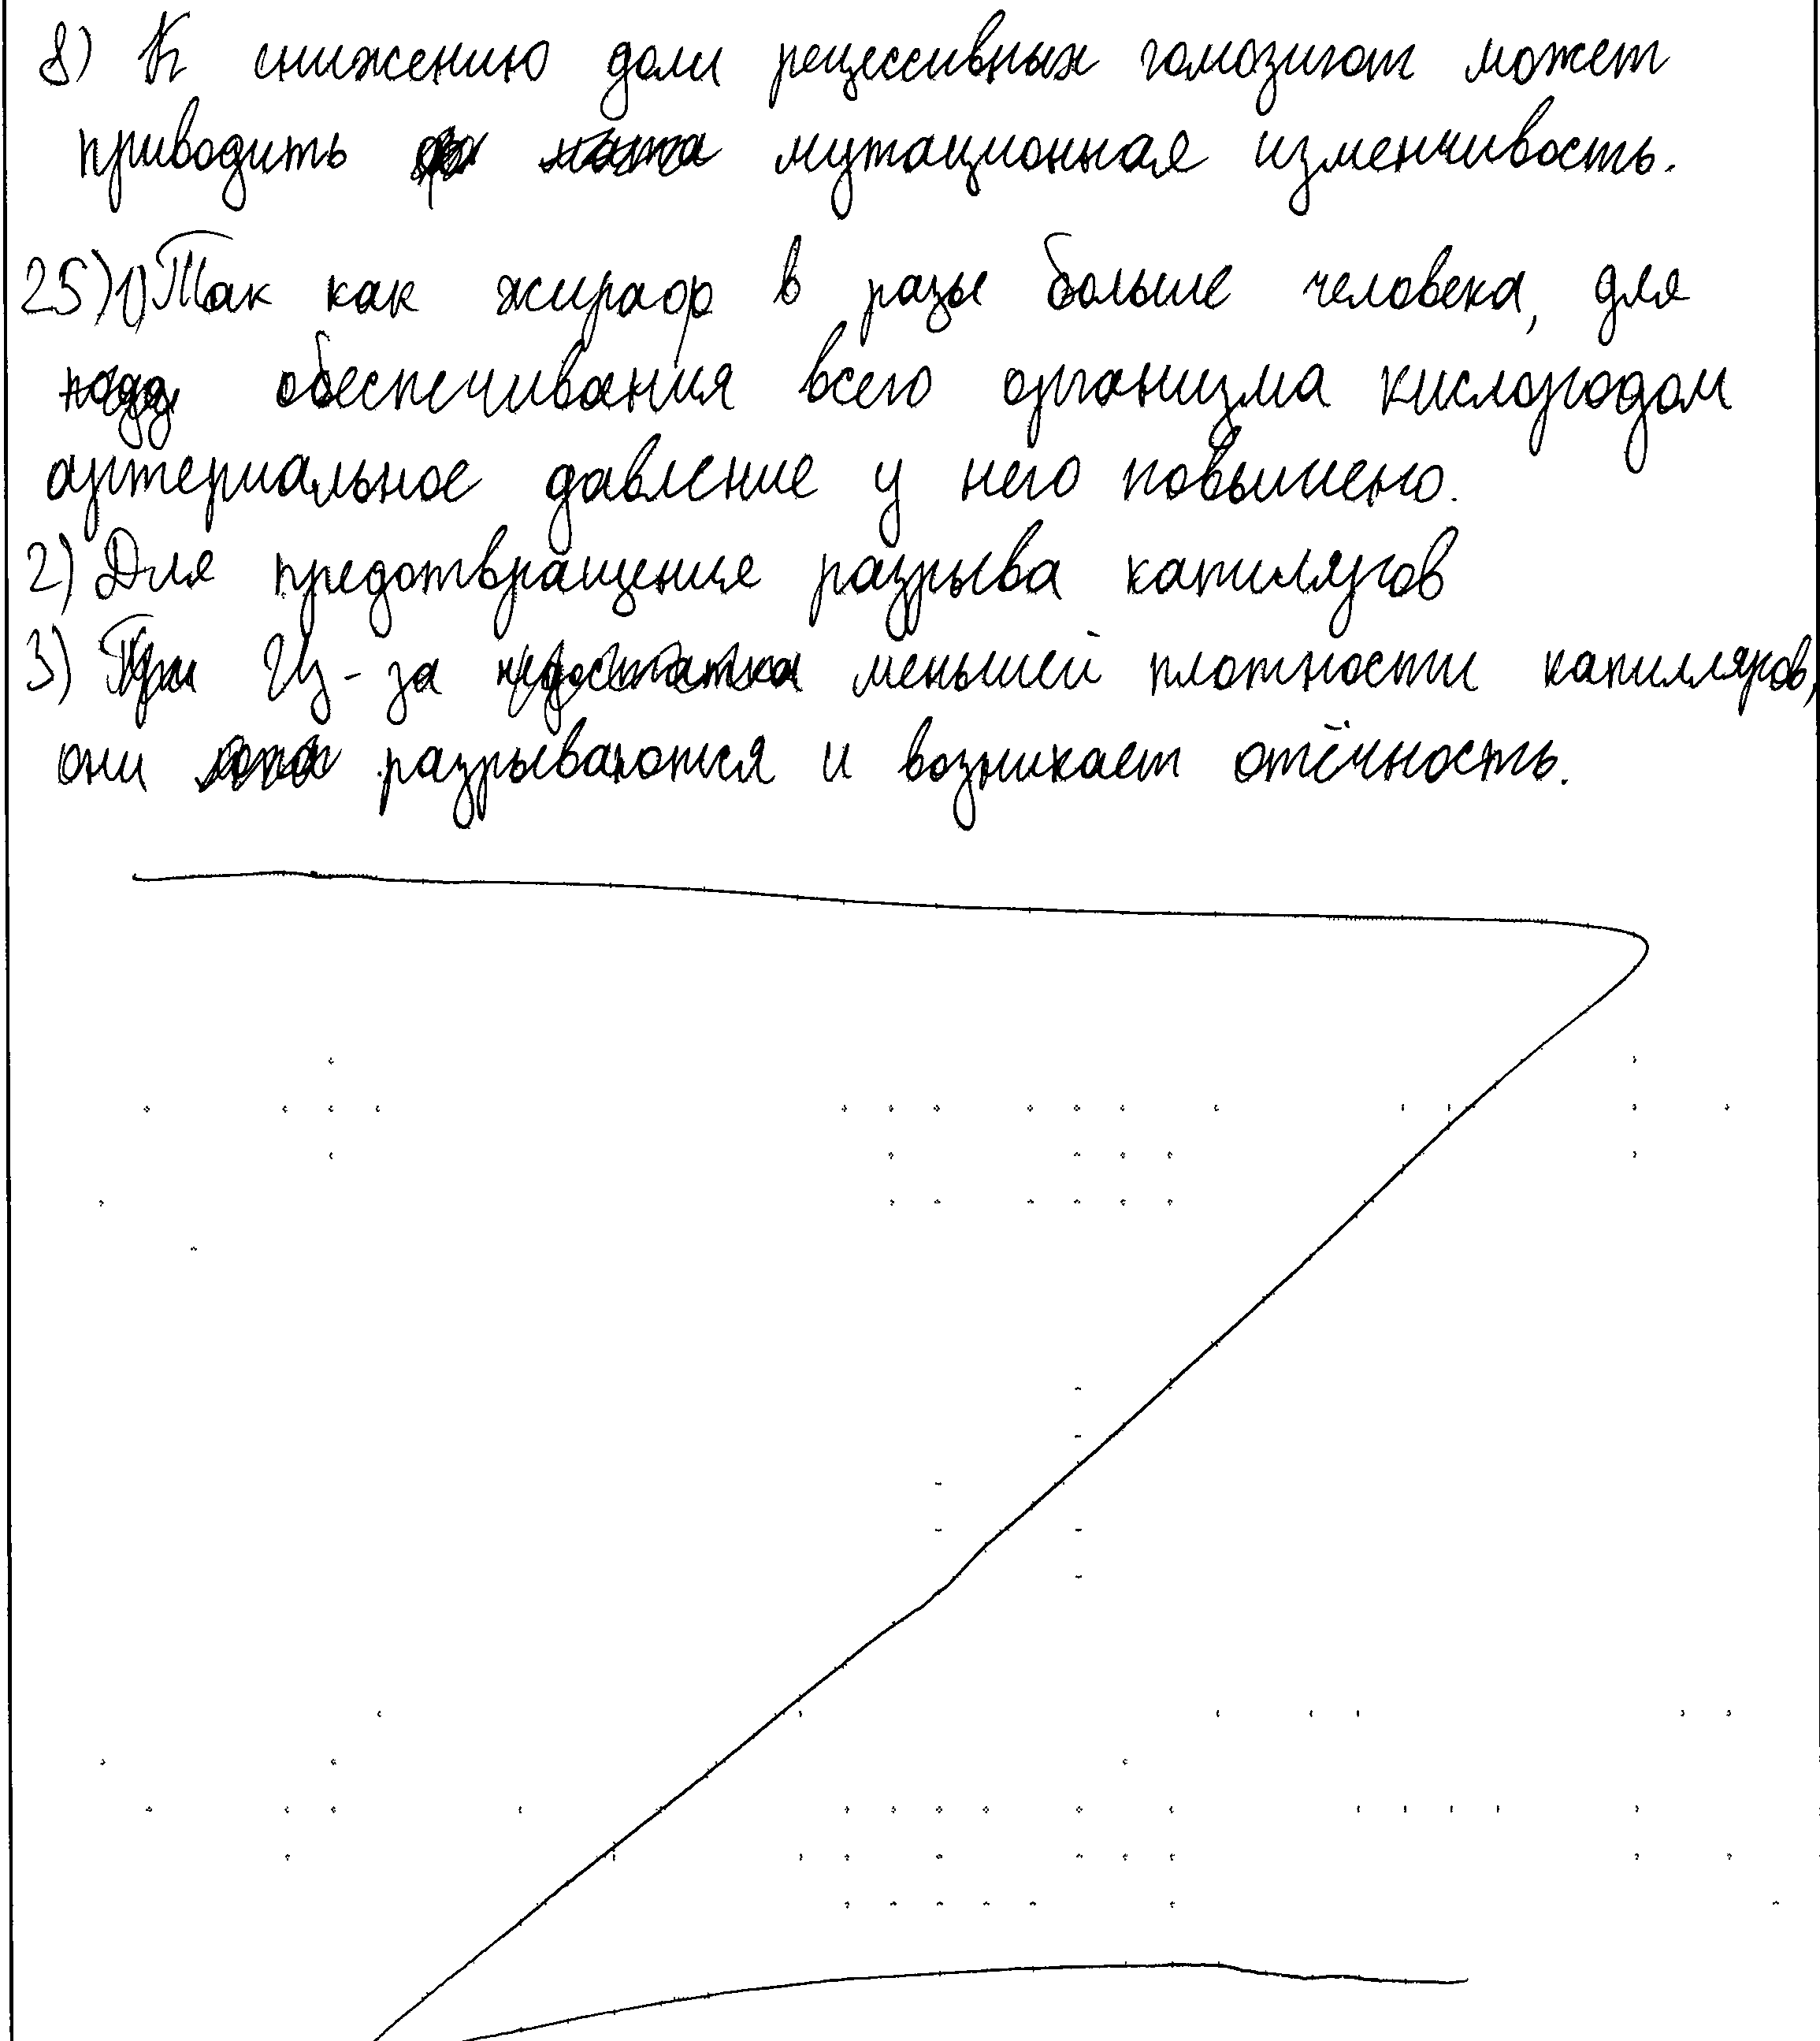 8) К снижению доли рецессивных гомозигот может
приводить мутационная изменчивость.
25) 1) Так как жираф в разы больше человека, для
обеспечивания всего организма кислородом
артериальное давление у него повышено.
2) Для предотвращение разрыва капиляров
3) Из-за меньшей плотности капилляров,
они разрываются и возникает отёчность.